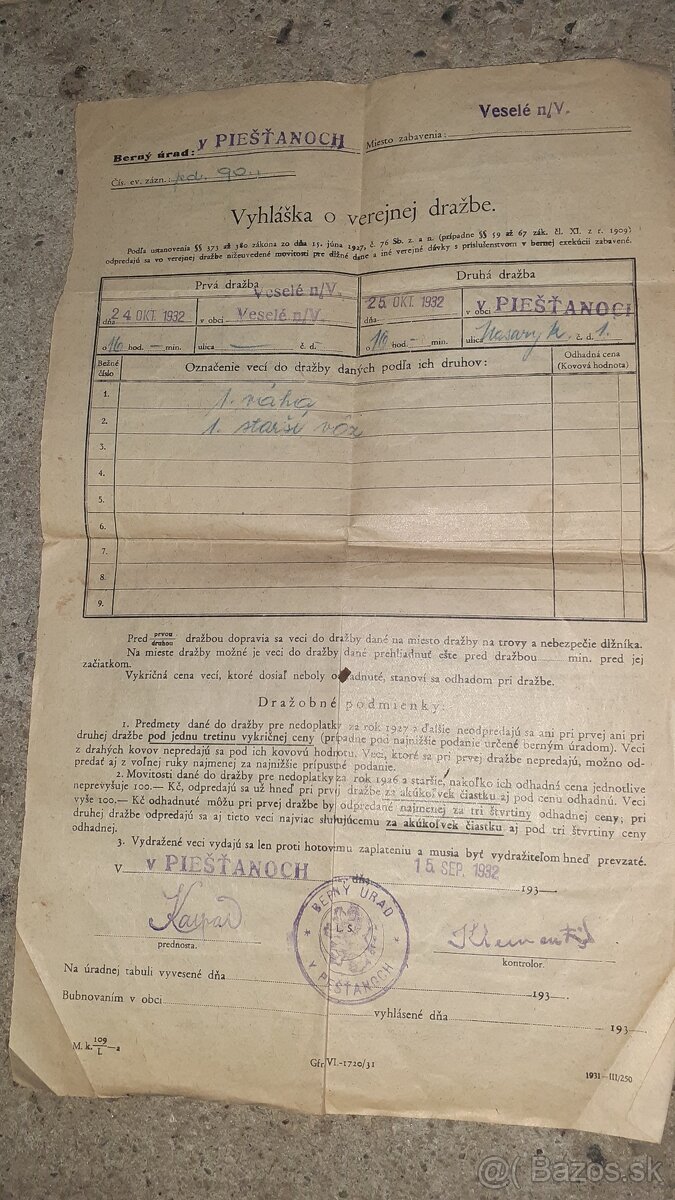 Veselé n/V.
Berný úrad: v PIEŠŤANOCH Miesto zabavenia:
Čís. ev. zázn.:
Vyhláška o verejnej dražbe.
Podľa ustanovenia §§ 373 až 380 zákona zo dňa 15. júna 1927, č. 76 Sb. z. a n. (prípadne §§ 59 až 67 zák. čl. XI. z r. 1909)
odpredajú sa vo verejnej dražbe nižeuvedené movitosti pre dlžné dane a iné verejné dávky s príslušenstvom v bernej exekúcii zabavené.
Prvá dražba Veselé n/V.
Druhá dražba
dňa 24 OKT. 1932 v obci Veselé n/V.
o 16 hod. — min. ulica — č. d. —
dňa 25 OKT. 1932 v obci v PIEŠŤANOCH
o 16 hod. — min. ulica Masaryk. č. d. 1.
Bežné číslo
Označenie vecí do dražby daných podľa ich druhov:
Odhadná cena
(Kovová hodnota)
1. 1. váha
2. 1. starší vôz
3.
4.
5.
6.
7.
8.
9.
Pred prvou druhou dražbou dopravia sa veci do dražby dané na miesto dražby na trovy a nebezpečie dlžníka.
Na mieste dražby možné je veci do dražby dané prehliadnuť ešte pred dražbou min. pred jej
začiatkom.
Vykričná cena vecí, ktoré dosiaľ neboly odhadnuté, stanoví sa odhadom pri dražbe.
Dražobné podmienky:
1. Predmety dané do dražby pre nedoplatky za rok 1927 a ďalšie neodpredajú sa ani pri prvej ani pri
druhej dražbe pod jednu tretinu vykričnej ceny (prípadne pod najnižšie podanie určené berným úradom). Veci
z drahých kovov nepredajú sa pod ich kovovú hodnotu. Veci, ktoré sa pri prvej dražbe nepredajú, možno od-
predať aj z voľnej ruky najmenej za najnižšie prípustné podanie.
2. Movitosti dané do dražby pre nedoplatky za rok 1926 a staršie, nakoľko ich odhadná cena jednotlive
neprevyšuje 100.— Kč, odpredajú sa už hneď pri prvej dražbe za akúkoľvek čiastku aj pod cenu odhadnú. Veci
vyše 100.— Kč odhadnuté môžu pri prvej dražbe byť odpredané najmenej za tri štvrtiny odhadnej ceny; pri
druhej dražbe odpredajú sa aj tieto veci najviac sľubujúcemu za akúkoľvek čiastku aj pod tri štvrtiny ceny
odhadnej.
3. Vydražené veci vydajú sa len proti hotovému zaplateniu a musia byť vydražiteľom hneď prevzaté.
V v PIEŠŤANOCH dňa 15 SEP. 1932 193
BERNÝ ÚRAD
L. S.
V PIEŠŤANOCH
prednosta.
kontrolor.
Na úradnej tabuli vyvesené dňa 193
Bubnovaním v obci vyhlásené dňa 193
M. k. 109/I. —a
Gfr. VI.-1720/31
1931—III/250
@( Bazos.sk